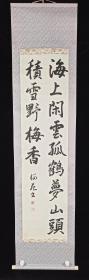 海上閑雲孤鶴夢山頭
積雪野梅香